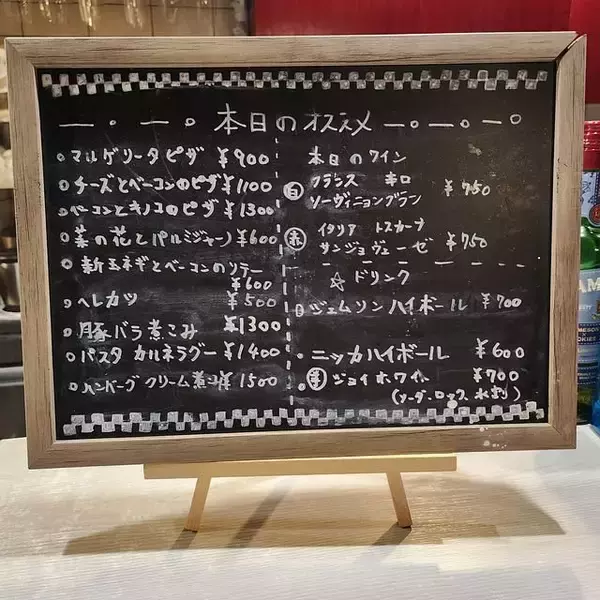 本日のオススメ
マルゲリータピザ ¥900
チーズとベーコンのピザ ¥1100
ベーコンとキノコのピザ ¥1300
菜の花とパルミジャーノ ¥600
新玉ネギとベーコンのソテー
¥600
ヘレカツ ¥500
豚バラ煮こみ ¥1300
パスタ カルネラグー ¥1400
ハンバーグ クリーム煮込 ¥1500
本日のワイン
白 フランス 辛口
ソーヴィニョンブラン ¥750
赤 イタリア トスカーナ
サンジョヴェーゼ ¥750
☆ドリンク
ジェムソンハイボール ¥700
ニッカハイボール ¥600
ジョイホワイト ¥700
(ソーダ・ロック 水割り)